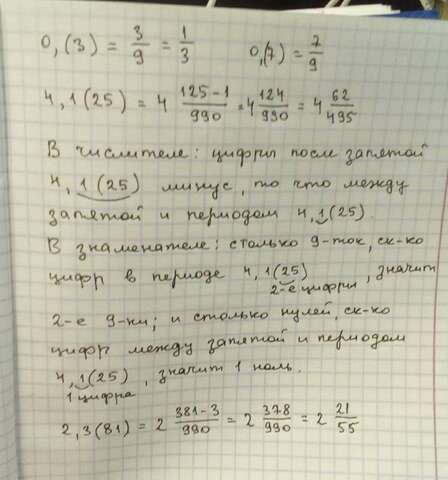 0,(3) = 3/9 = 1/3    0,(7) = 7/9
4,1(25) = 4 125-1/990 = 4 124/990 = 4 62/495
В числителе: цифры после запятой
4,1(25) минус, то что между
запятой и периодом 4,1(25).
В знаменателе: столько 9-ток, ск-ко
цифр в периоде 4,1(25), значит
2-е цифры
2-е 9-ки; и столько нулей, ск-ко
цифр между запятой и периодом
4,1(25), значит 1 ноль.
1 цифра
2,3(81) = 2 381-3/990 = 2 378/990 = 2 21/55